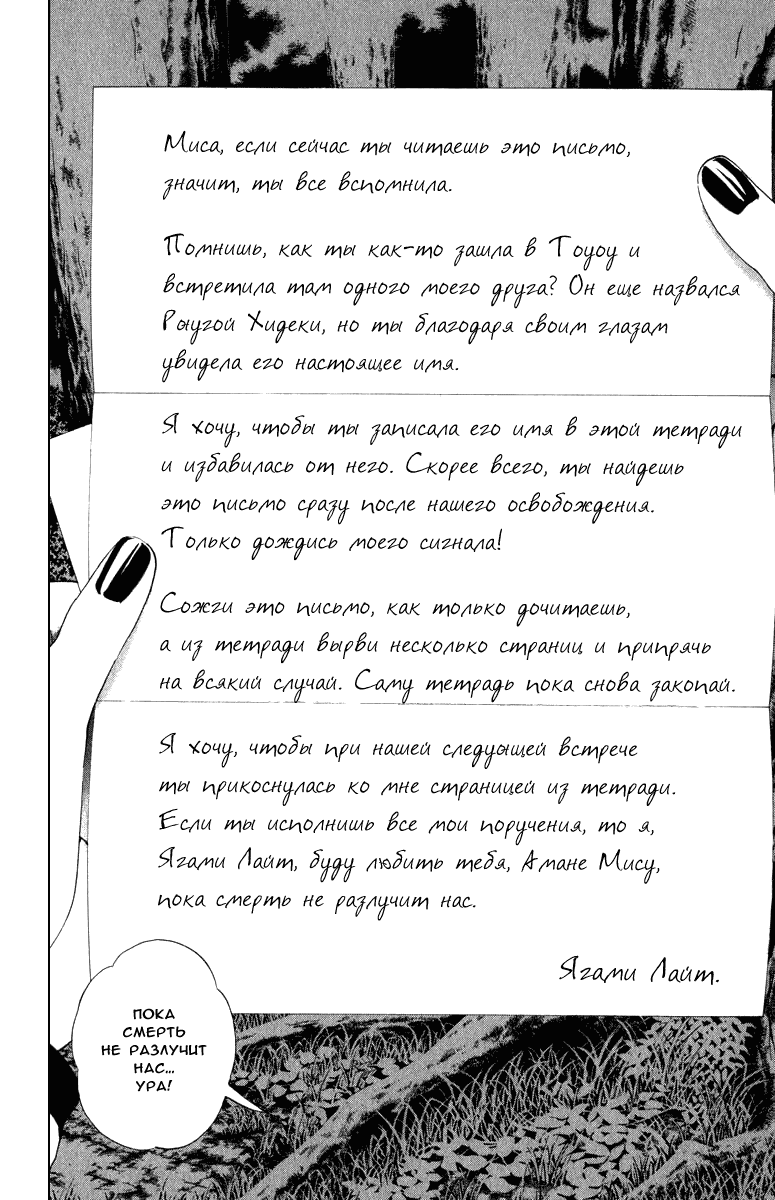 Миса, если сейчас ты читаешь это письмо,
значит, ты все вспомнила.
Помнишь, как ты как-то зашла в Тоуоу и
встретила там одного моего друга? Он еще назвался
Рыугой Хидеки, но ты благодаря своим глазам
увидела его настоящее имя.
Я хочу, чтобы ты записала его имя в этой тетради
и избавилась от него. Скорее всего, ты найдешь
это письмо сразу после нашего освобождения.
Только дождись моего сигнала!
Сожги это письмо, как только дочитаешь,
а из тетради вырви несколько страниц и припрячь
на всякий случай. Саму тетрадь пока снова закопай.
Я хочу, чтобы при нашей следуыщей встрече
ты прикоснулась ко мне страницей из тетради.
Если ты исполнишь все мои поручения, то я,
Ягами Лайт, буду любить тебя, Амане Мису,
пока смерть не разлучит нас.
Ягами Лайт.
ПОКА
СМЕРТЬ
НЕ РАЗЛУЧИТ
НАС...
УРА!